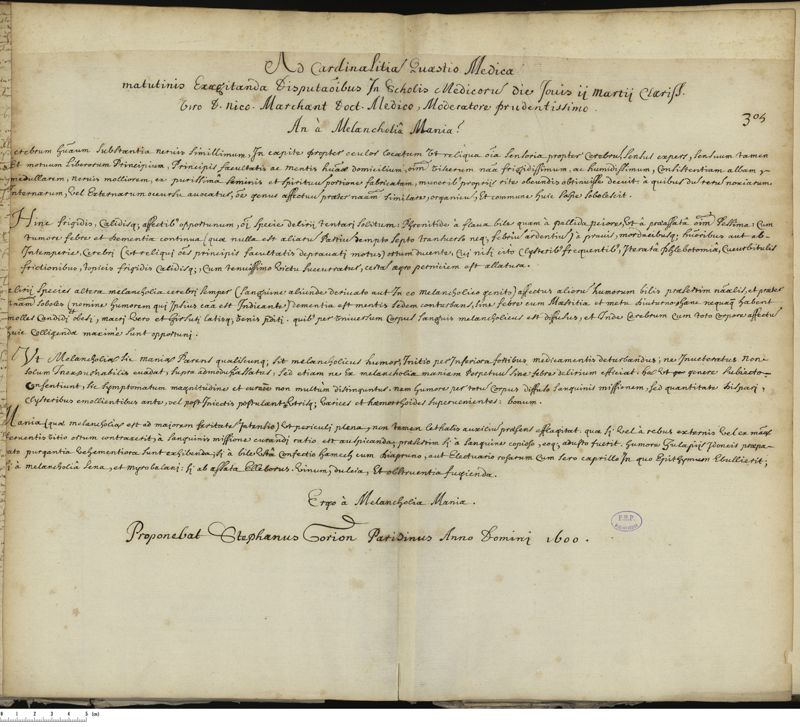 Ad Cardinalitia Quæstio Medica
matutinis Exagitanda Disputaoibus In Scholis Medicoru Die Jouis ij martij Clariss.
Viro D. nico. Marchant Doct. Medico, Moderatore prudentissimo.
304
An à Melancholiâ Mania?
cerebrum substantia neruis simillimum, In capite propter oculos locatum Et reliqua oia sensoria propter Cerebru, sensus expers, sensuum tamen
Et motuum liberorum Principium, Principis facultatis ac mentis domicilium, Viscerum naa frigidissimum, ac humidissimum, Consistentiam albam
medullarem, neruis molliorem, ex purissima seminis et spirituu portione fabricatam, munerib propriis rite obeundis obtinuisse decuit: à quibus noxiarum
Internarum, Vel Externarum occursu auocatur, genus affectus præter similare, organicu, Et commune huic sæpe sobolescit.
Hinc frigidis, Calidisq; affectib opportunum, specie delirij tentari solitum: Phrenitide à flaua bile quam à pallida peiore, Et à præassata Pessima: Cum
tumore febre et dementia continua (quæ nulla est aliaru Partiu dempto septo transuerso neq; febriu ardentiu) à prauis, mordacibusq; humoribus aut ab
Intemperie Cerebri (Et reliqui principis facultatis deprauati motus) ortum ducente, Cui nisi cito Clysterib frequentib, Iterata phlebotomia, Cucurbitulis
frictionibus, topicis frigidis calidisq; Cum tenuissimo Victu succurratur, certa ægro perniciem est allatura.
Species altera melancholia cerebri semper (sanguine aliunde deriuato aut In eo melancholico genito) affectus alioru humorum bilis præsertim et præter
soboles (nomine humorem qui Ipsius caa est Indicante) Dementia est mentis sedem conturbans, sine febre cum Mæstitia et metu diuturno hanc nequaq habent
molles Candidi obesi, macri Vero et hirsuti latisq; Venis quib per Vniuersum Corpus sanguis melancholicus est diffusus, et Inde Cerebrum cum toto corpore affectu
huic Colligenda maximè sunt opportuni.
Vt Melancholia sic mania Parens qualiscunq; sit melancholicus humor, Initio per Inferiora fortibus medicamentis deturbandus; ne Inueteratus non
solum Inexpugnabilis euadat, supra admodu assatus, sed etiam ne Ex melancholia maniam Perpetuu sine febre delirium efficiat: genere subiecto
Consentiunt, sic symptomatum magnitudine et non multùm distinguntur. nam humore per totu Corpus diffuso sanguinis missionem, sed quantitate dispari,
Clysteribus emollientibus ante, vel post Iniectis postulant Vtrisq; Varices et hæmorrhoides superuenientes: bonum.
Mania (quæ melancholia est ad maiorem feritate extensio) Et periculi plena, non tamen Lethalis auxiliu præsens efflagitat. quæ si Vel à rebus externis Vel ex
Vitio ortum contraxerit, à sanguinis missione curandi ratio est auspicanda, præsertim si à sanguine copioso, eoq; adusto fuerit. humore Idoneis præpa-
rato purgantia Vehementiora sunt exhibenda, si à bile Confectio hamech cum diapruno, aut Electuario rosarum Cum sero caprillo In quo Epithymum Ebullierit;
si à melancholia sena, et myrobalani: si ab assata Elleborus. Vinum, dulcia, Et obstruentia fugienda.
Ergo à Melancholia Mania.
Proponebat Stephanus Gorion Parisinus Anno Domini 1600.
0 1 2 3 4 5 (in)